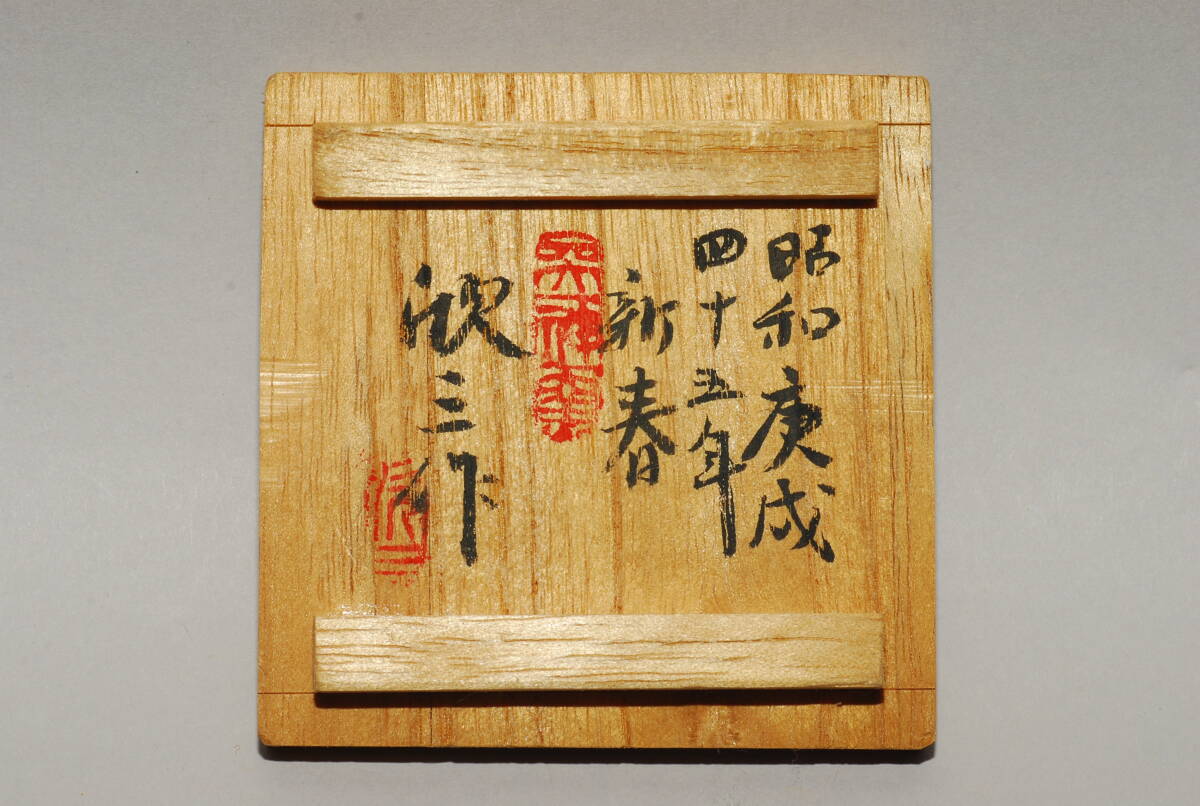 昭和庚戌
四十五年
新春
欣三作